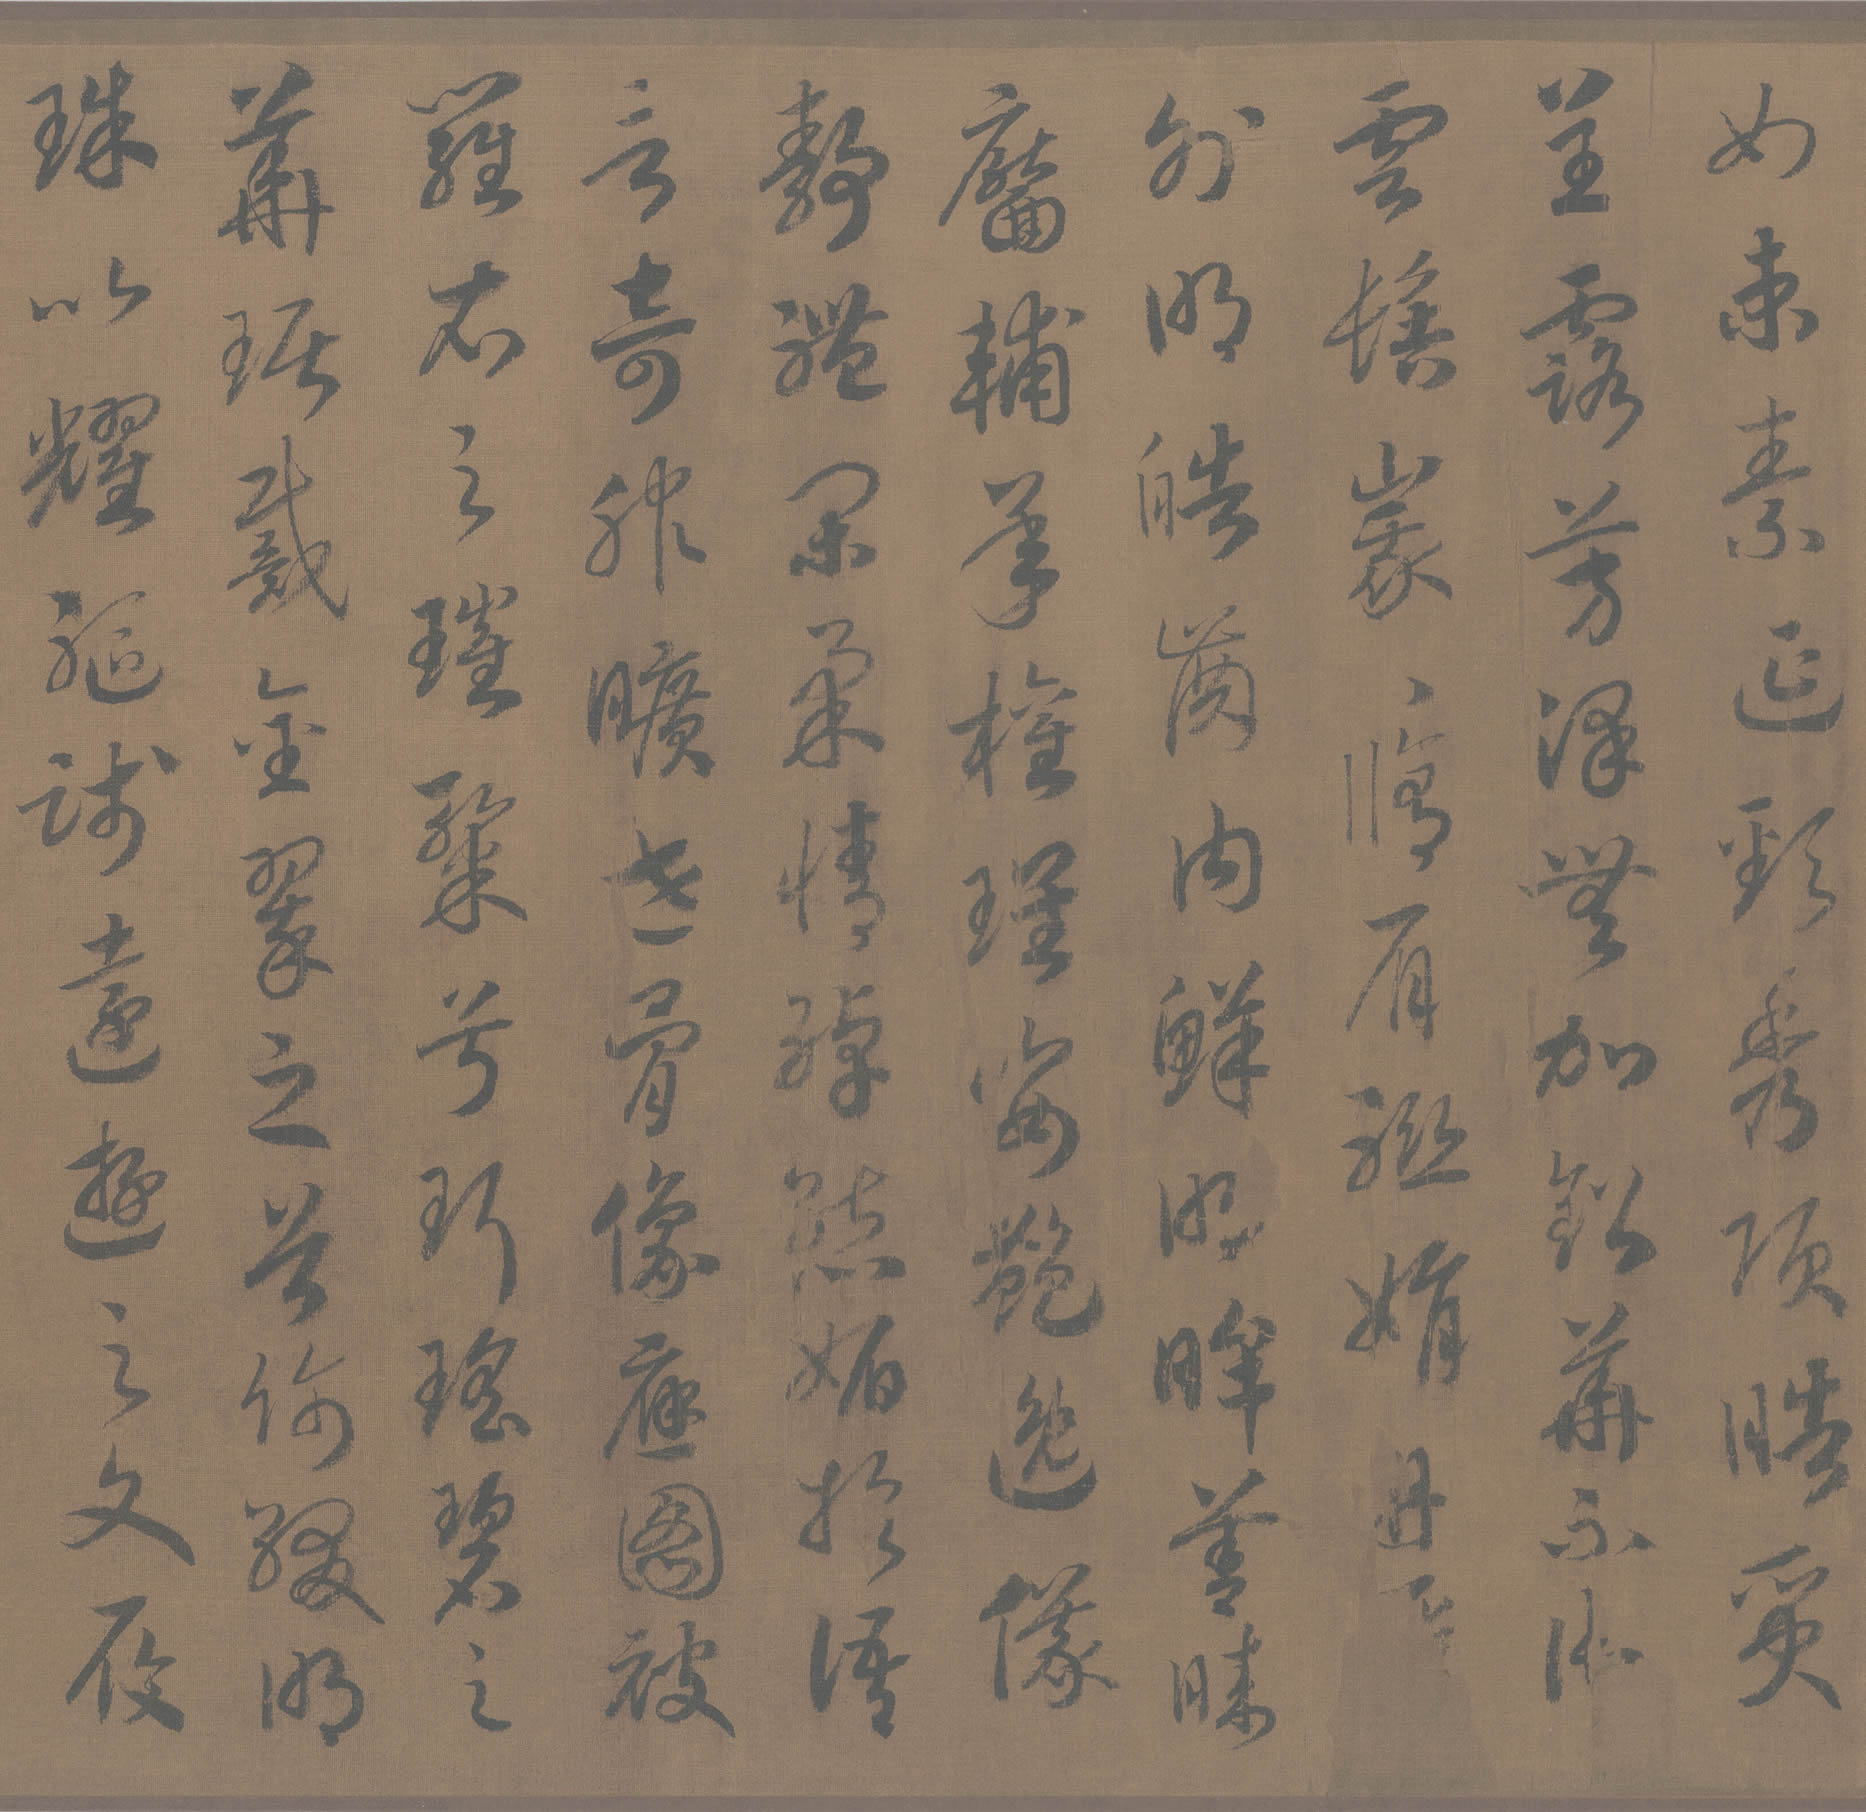 如束素延頸秀項皓質
呈露芳澤無加鉛華不御
雲髻峩〻脩眉聯娟丹
外朗皓齒內鮮明眸善睞
靨輔承權瓌姿艷逸儀
靜體閑柔情綽態媚於語
言奇服曠世骨像應圖被
羅衣之璀粲兮珥瑤碧之
華琚戴金翠之首飾綴明
珠以耀軀踐遠遊之文履